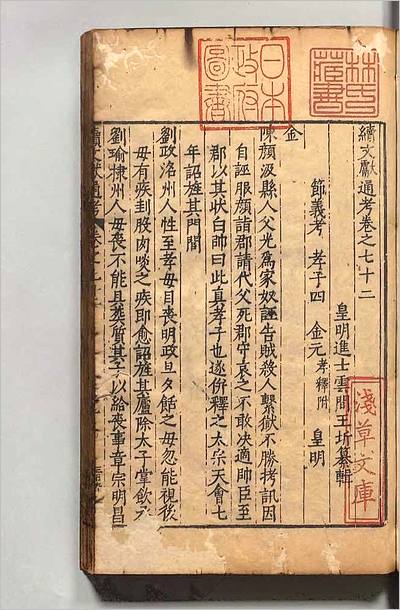 續文獻通考卷之七十二
皇明進士雲間王圻纂輯
節義考 孝子四 金元 孝釋附 皇明
金
陳顏汲縣人父光爲家奴誣告賊殺人繫獄不勝拷訊因
自誣服顏詣郡請代父死郡守哀之不敢決適帥臣至
郡以其狀白帥曰此真孝子也遂併釋之太宗天會七
年詔旌其門閭
劉政洺州人性至孝母目喪明政旦夕餂之母忽能視後
母有疾刲股肉啖之疾即愈詔旌其廬除太子掌飲丞
劉瑜棣州人母喪不能具葬質其子以給喪事章宗明昌
日本
政府
圖書
林氏
藏書
淺草文庫